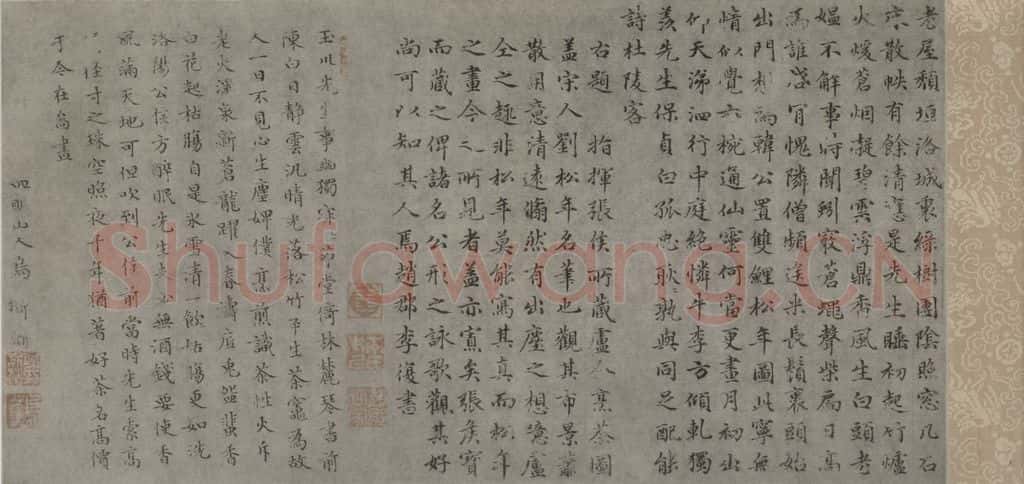 老屋頹垣洛城裏綠樹團陰照窓几石
床散帙有餘清應是先生睡初起竹爐
火煖蒼烟凝碧雲浮鼎香風生白頭老
媼不解事關蚓竅蒼蠅聲柴扃日高
爲誰啓肎愧隣僧頻送米長鬚裹頭始
出門想爲韓公置雙鯉松年圖此寧無
情似覺六椀通仙靈何當更畫月初出
仰天涕泗行中庭絶憐牛李方傾軋獨
羨先生保貞白孤忠耿孰與同足配能
詩杜陵客
右題 指揮張侯所藏盧仝烹茶圖
蓋宋人劉松年名筆也觀其布景叢
散用意清遠翛然有出塵之想隐盧
仝之趣非松年莫能寫其真而松年
之畫今之所見者盖亦寡矣張侯寶
而藏之俾諸名公形之詠歌觀其好
尚可以知其人焉趙郡李復書
玉川先生事幽獨堂琴書前
陳白日靜雲汎晴光落松竹平生茶竈為故
人一日不見心生塵婢僕烹煎識茶性火
老火深泉新蒼龍躍入春濤底兔甌蜚香
白花起枯腸自是氷雪清一飲腸更如洗
洛陽公侯方醉眠先生無酒錢要使香
風滿天地可但吹到公侯前當時先生索高
徑寸之珠空照夜千年猶著好茶名高情
于今在畫
四明山人
Shufawang.CN